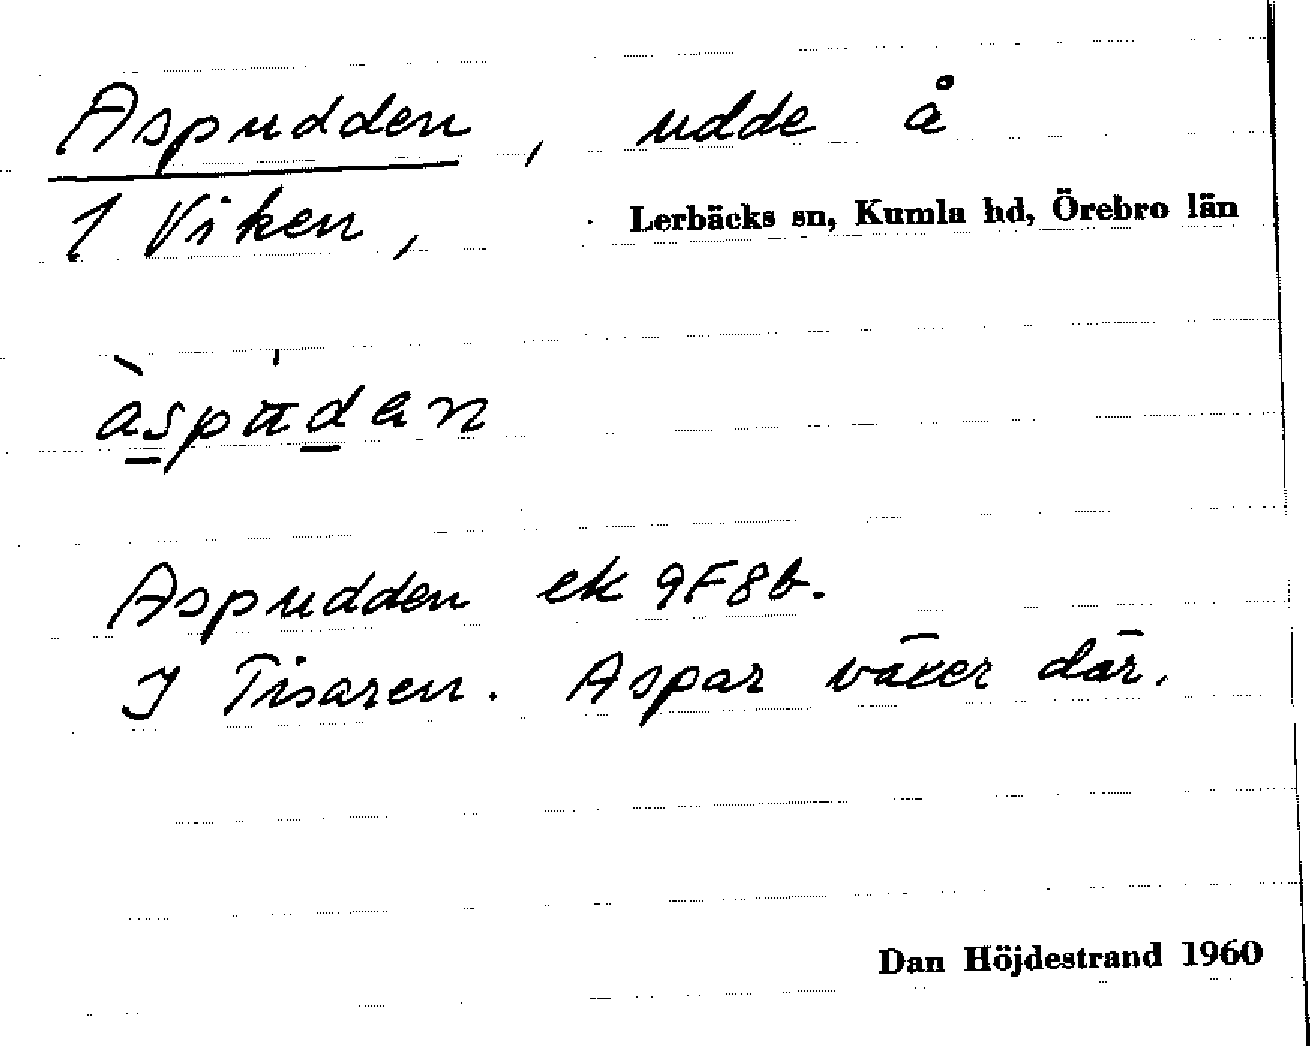 Aspudden, udde å
1 Viken, Lerbäcks sn, Kumla hd, Örebro län
àspu̇dan
Aspudden ek 9F8b.
I Tisaren. Aspar växer där.
Dan Höjdestrand 1960